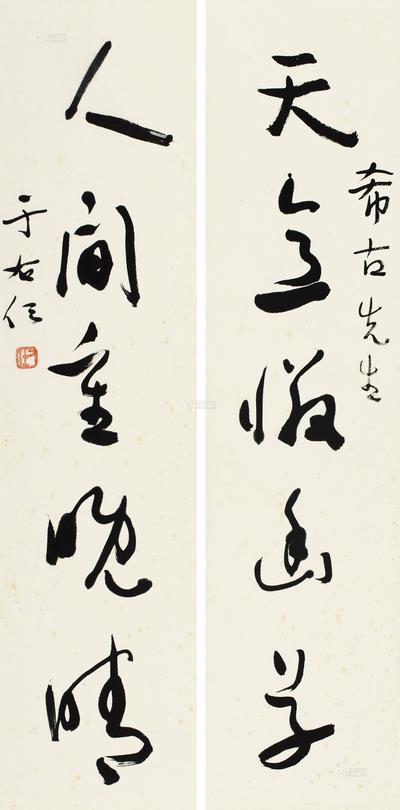 希古先生
天意憐幽草
人間重晚晴
于右任